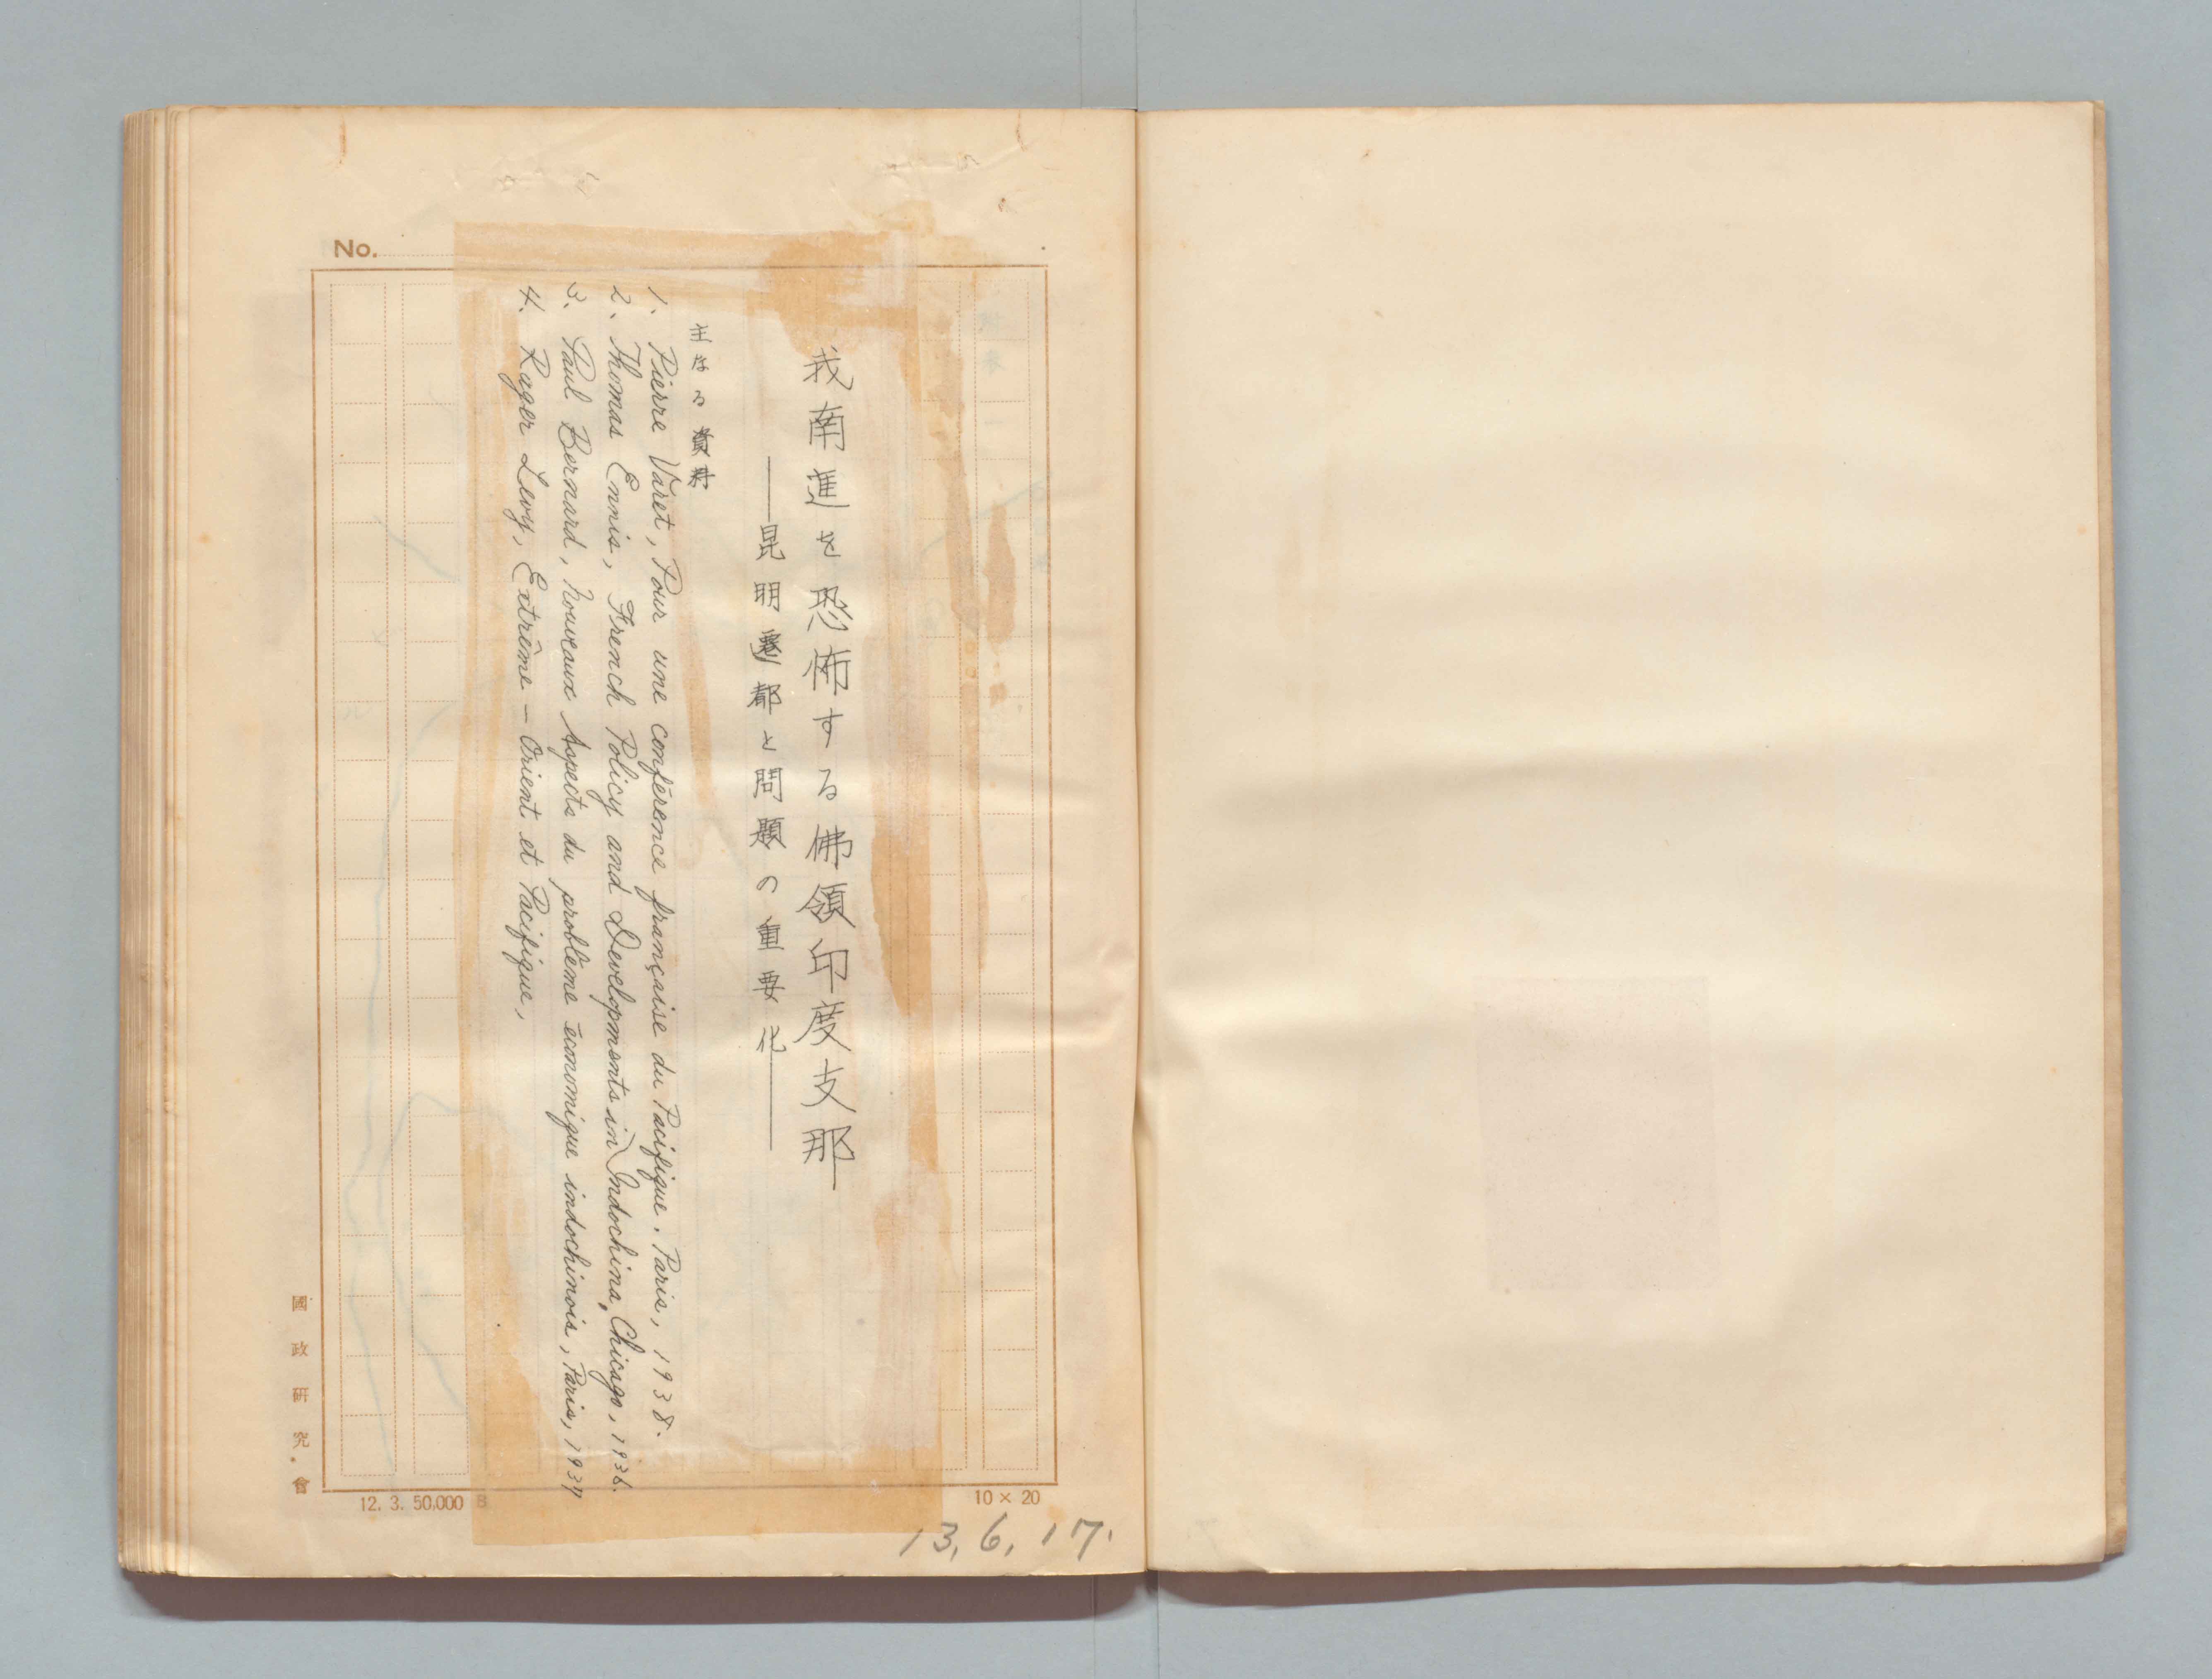 我南進を恐怖する佛領印度支那
——昆明遷都と問題の重要化——
主なる資料
1. Pierre Varet, Pour une conférence française du Pacifique. Paris, 1938.
2. Thomas Ennis, French Policy and Developments in Indochina, Chicago, 1936.
3. Paul Bernard, Nouveaux Aspects du problème économique indochinois, Paris, 1937
4. Roger Levy, Extrême-Orient et Pacifique,
No.
國政研究會
12. 3. 50,000 B
10 × 20
13, 6, 17.